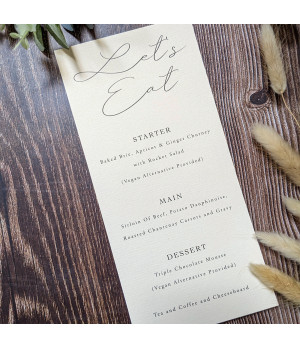 Let's
Eat
STARTER
Baked Brie, Apricot & Ginger Chutney
with Rocket Salad
(Vegan Alternative Provided)
MAIN
Sirloin Of Beef, Potato Dauphinoise,
Roasted Chantenay Carrots and Gravy
DESSERT
Triple Chocolate Mousse
(Vegan Alternative Provided)
Tea and Coffee and Cheeseboard